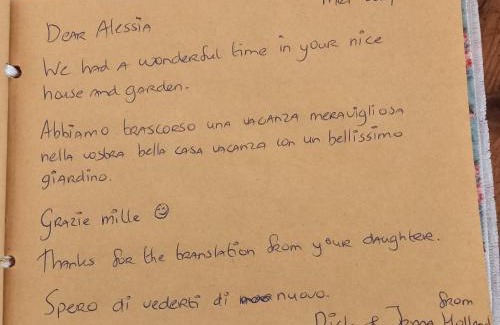 Dear Alessia
We had a wonderful time in your nice
house and garden.
Abbiamo trascorso una vacanza meravigliosa
nella vostra bella casa vacanza con un bellissimo
giardino.
Grazie mille ☺
Thanks for the translation from your daughtere.
Spero di vederti di nuovo.
from